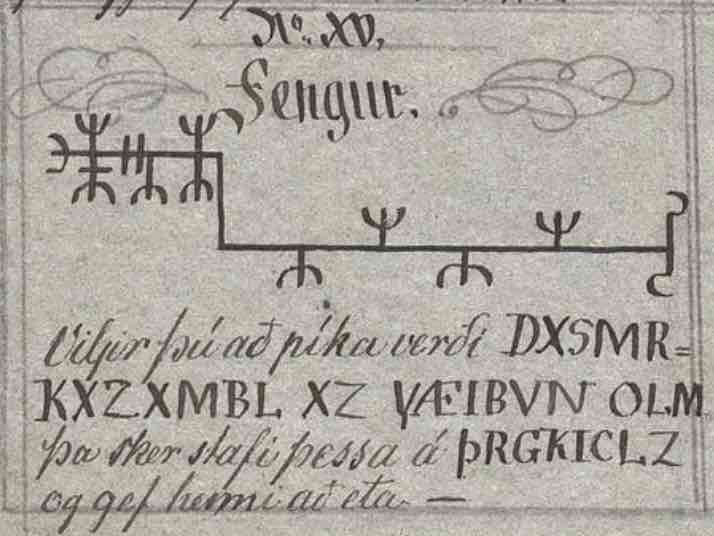 No. XV.
Fengur.
Viljir þú að píka verði DXSMR=
KXZXMBL XZ YÆIBVN OLM
þa sker stafi þessa á ÞRGKICLZ
og gef henni að eta —